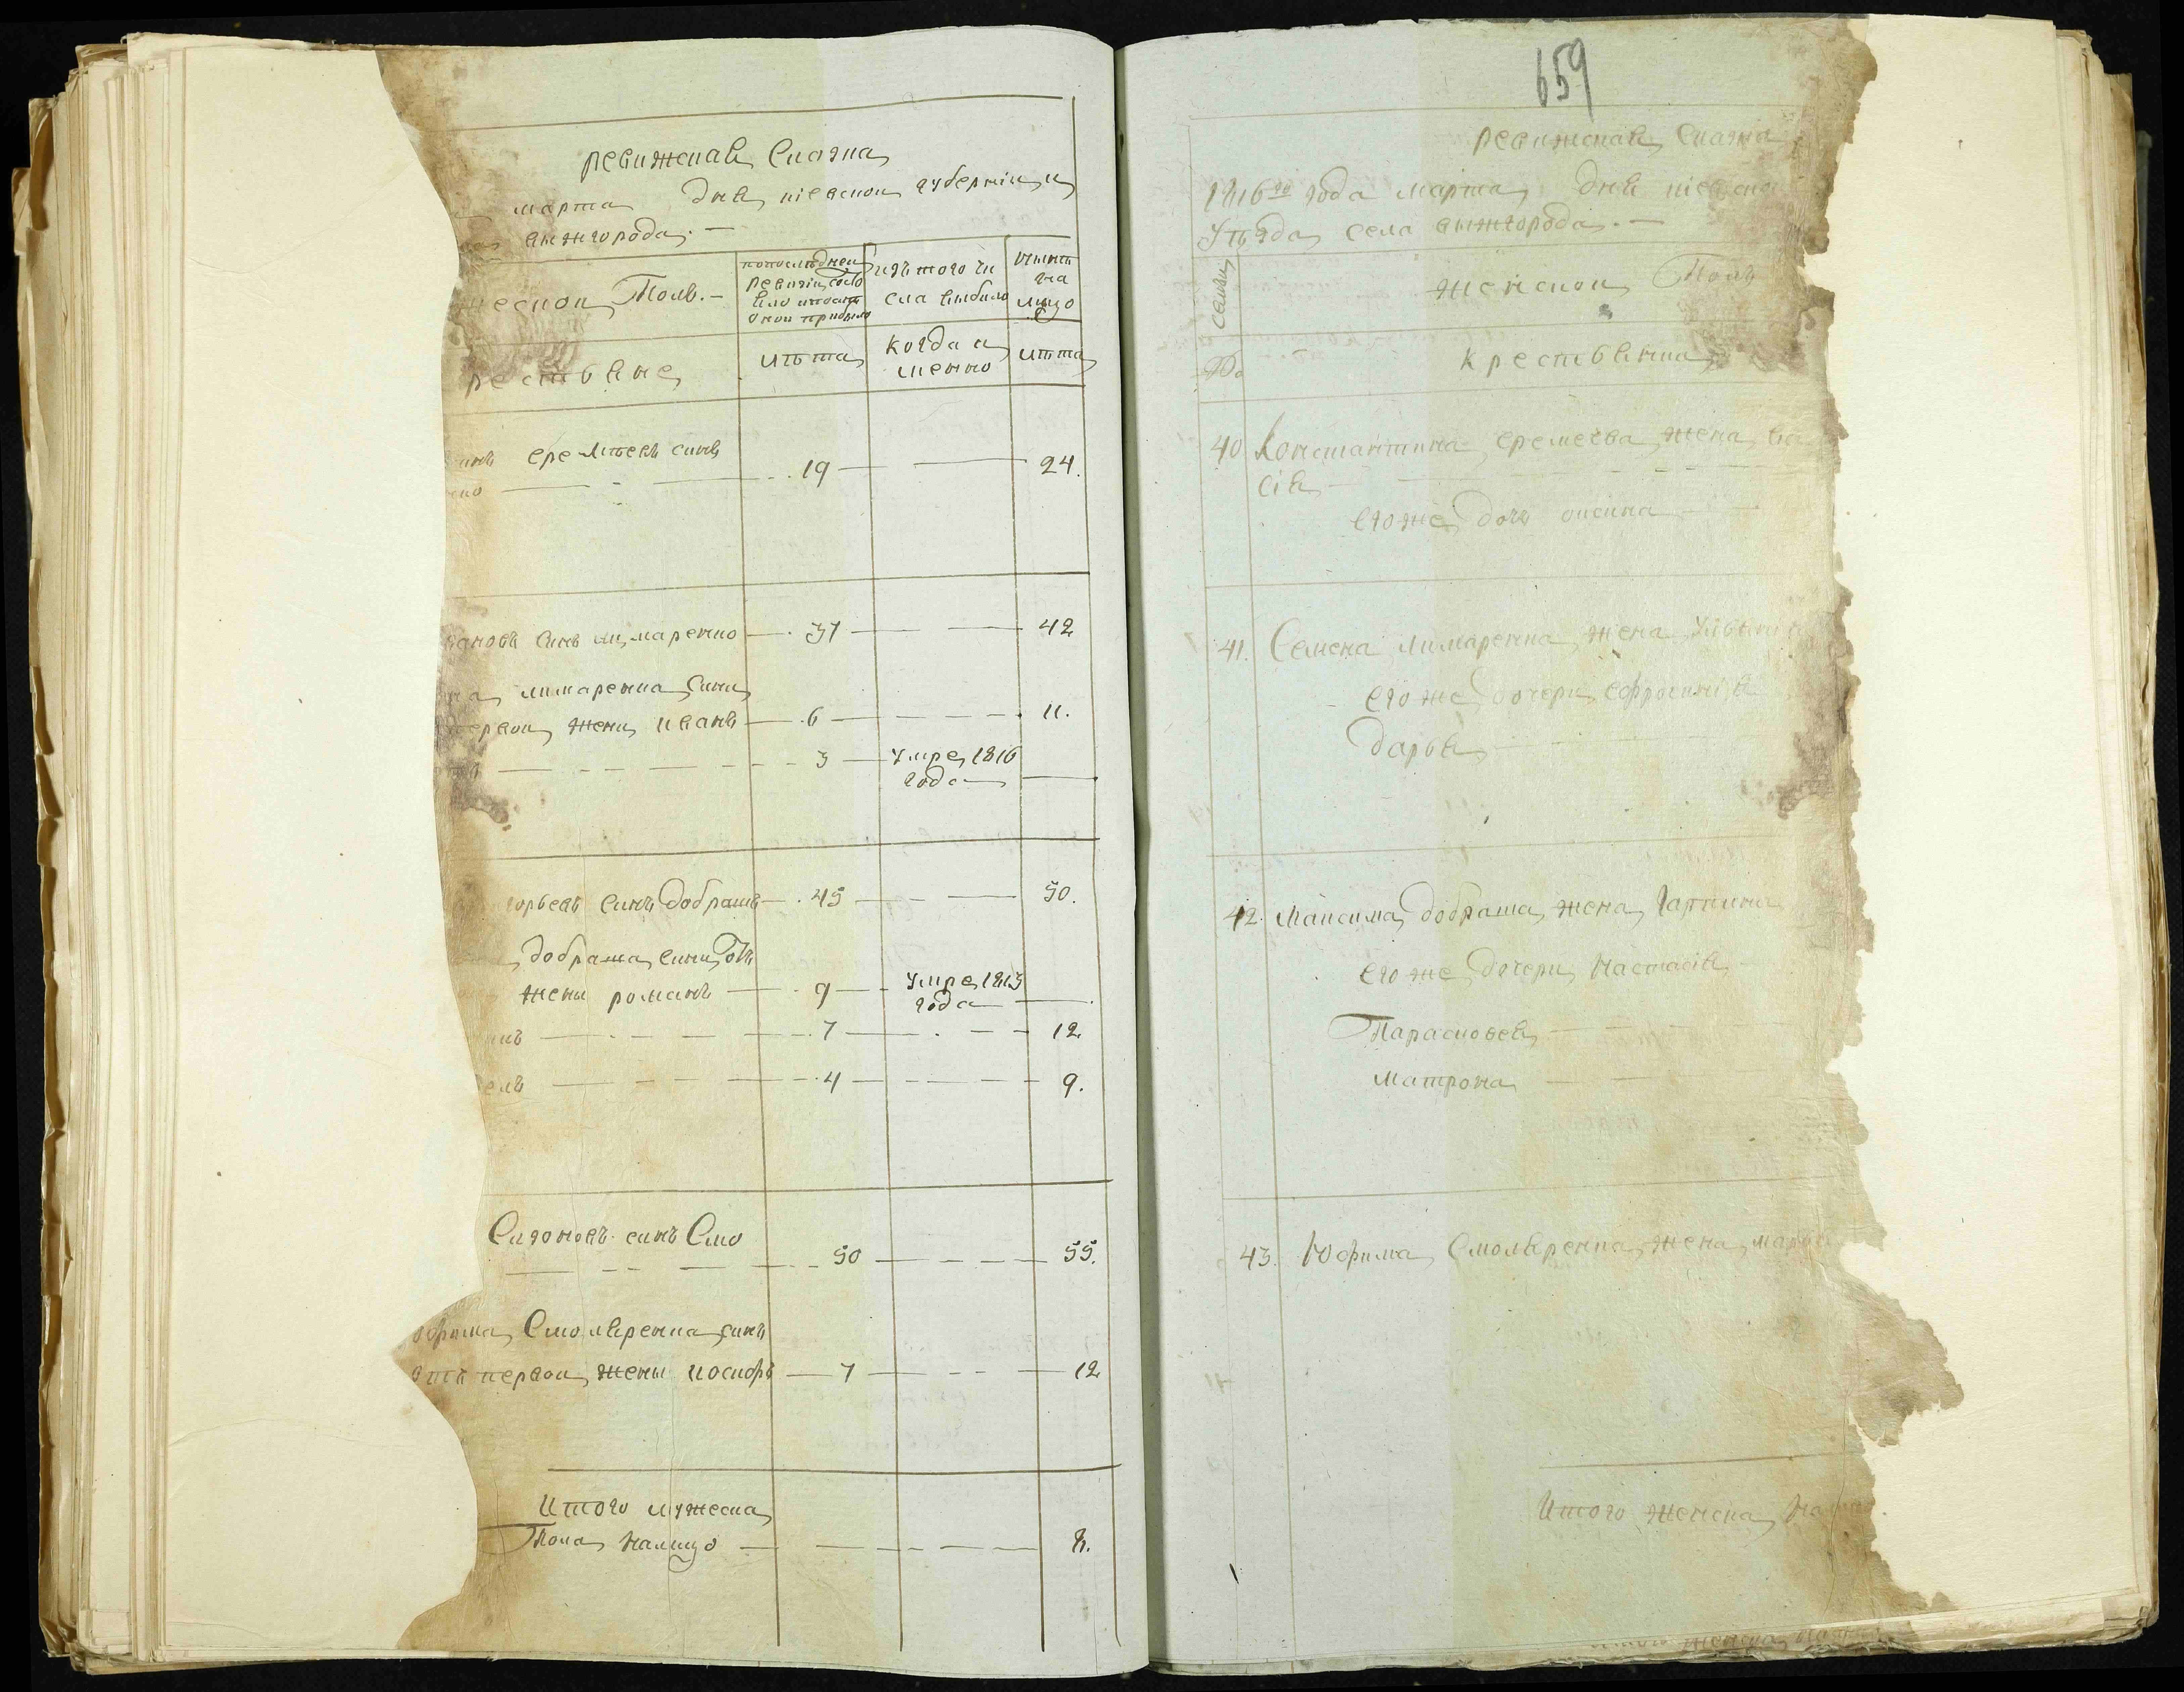 ревижская сказка
марта дня киевской губернии и
вижгорода. —
жеской Полъ. —
попоследней ревизіи состояло и после оной прибыло
изъ того числа выбило
ныне на лицо
рестьяне
лета
когда именно
лета
Еремѣевъ синъ — 19 — — 24.
ановъ синъ лимаренко — 37 — — 42
лимаренка сини
первой жени иванъ — 6 — — 11.
— 3 — умре 1816 года —
горьевъ синъ добрашъ — 45 — — 50.
добраша сини отъ
жены романъ — 9 — умре 1813 года —
— 7 — — 12
— 4 — — 9.
Сазоновъ синъ Смо
— 50 — — 55.
офима Смоляренка синъ
отъ первой жены иосифъ — 7 — — 12
Итого мужеска
Пола налицо — — 8.
659
ревижская сказка
1816го года марта дня киевско
Уѣзда села вижгорода. —
семьи
женской Полъ
№
крестьянка
40 Константина еремеева жена ва
сія —
его же дочь
41. Семена лимаренка жена Ульяна
его же дочери ефросинія
дарья —
42. Максима добраша жена Гапкина
его же дочери Настасія —
Парасковея —
матрона —
43. Юфима Смоляренка жена марья
Итого женска на